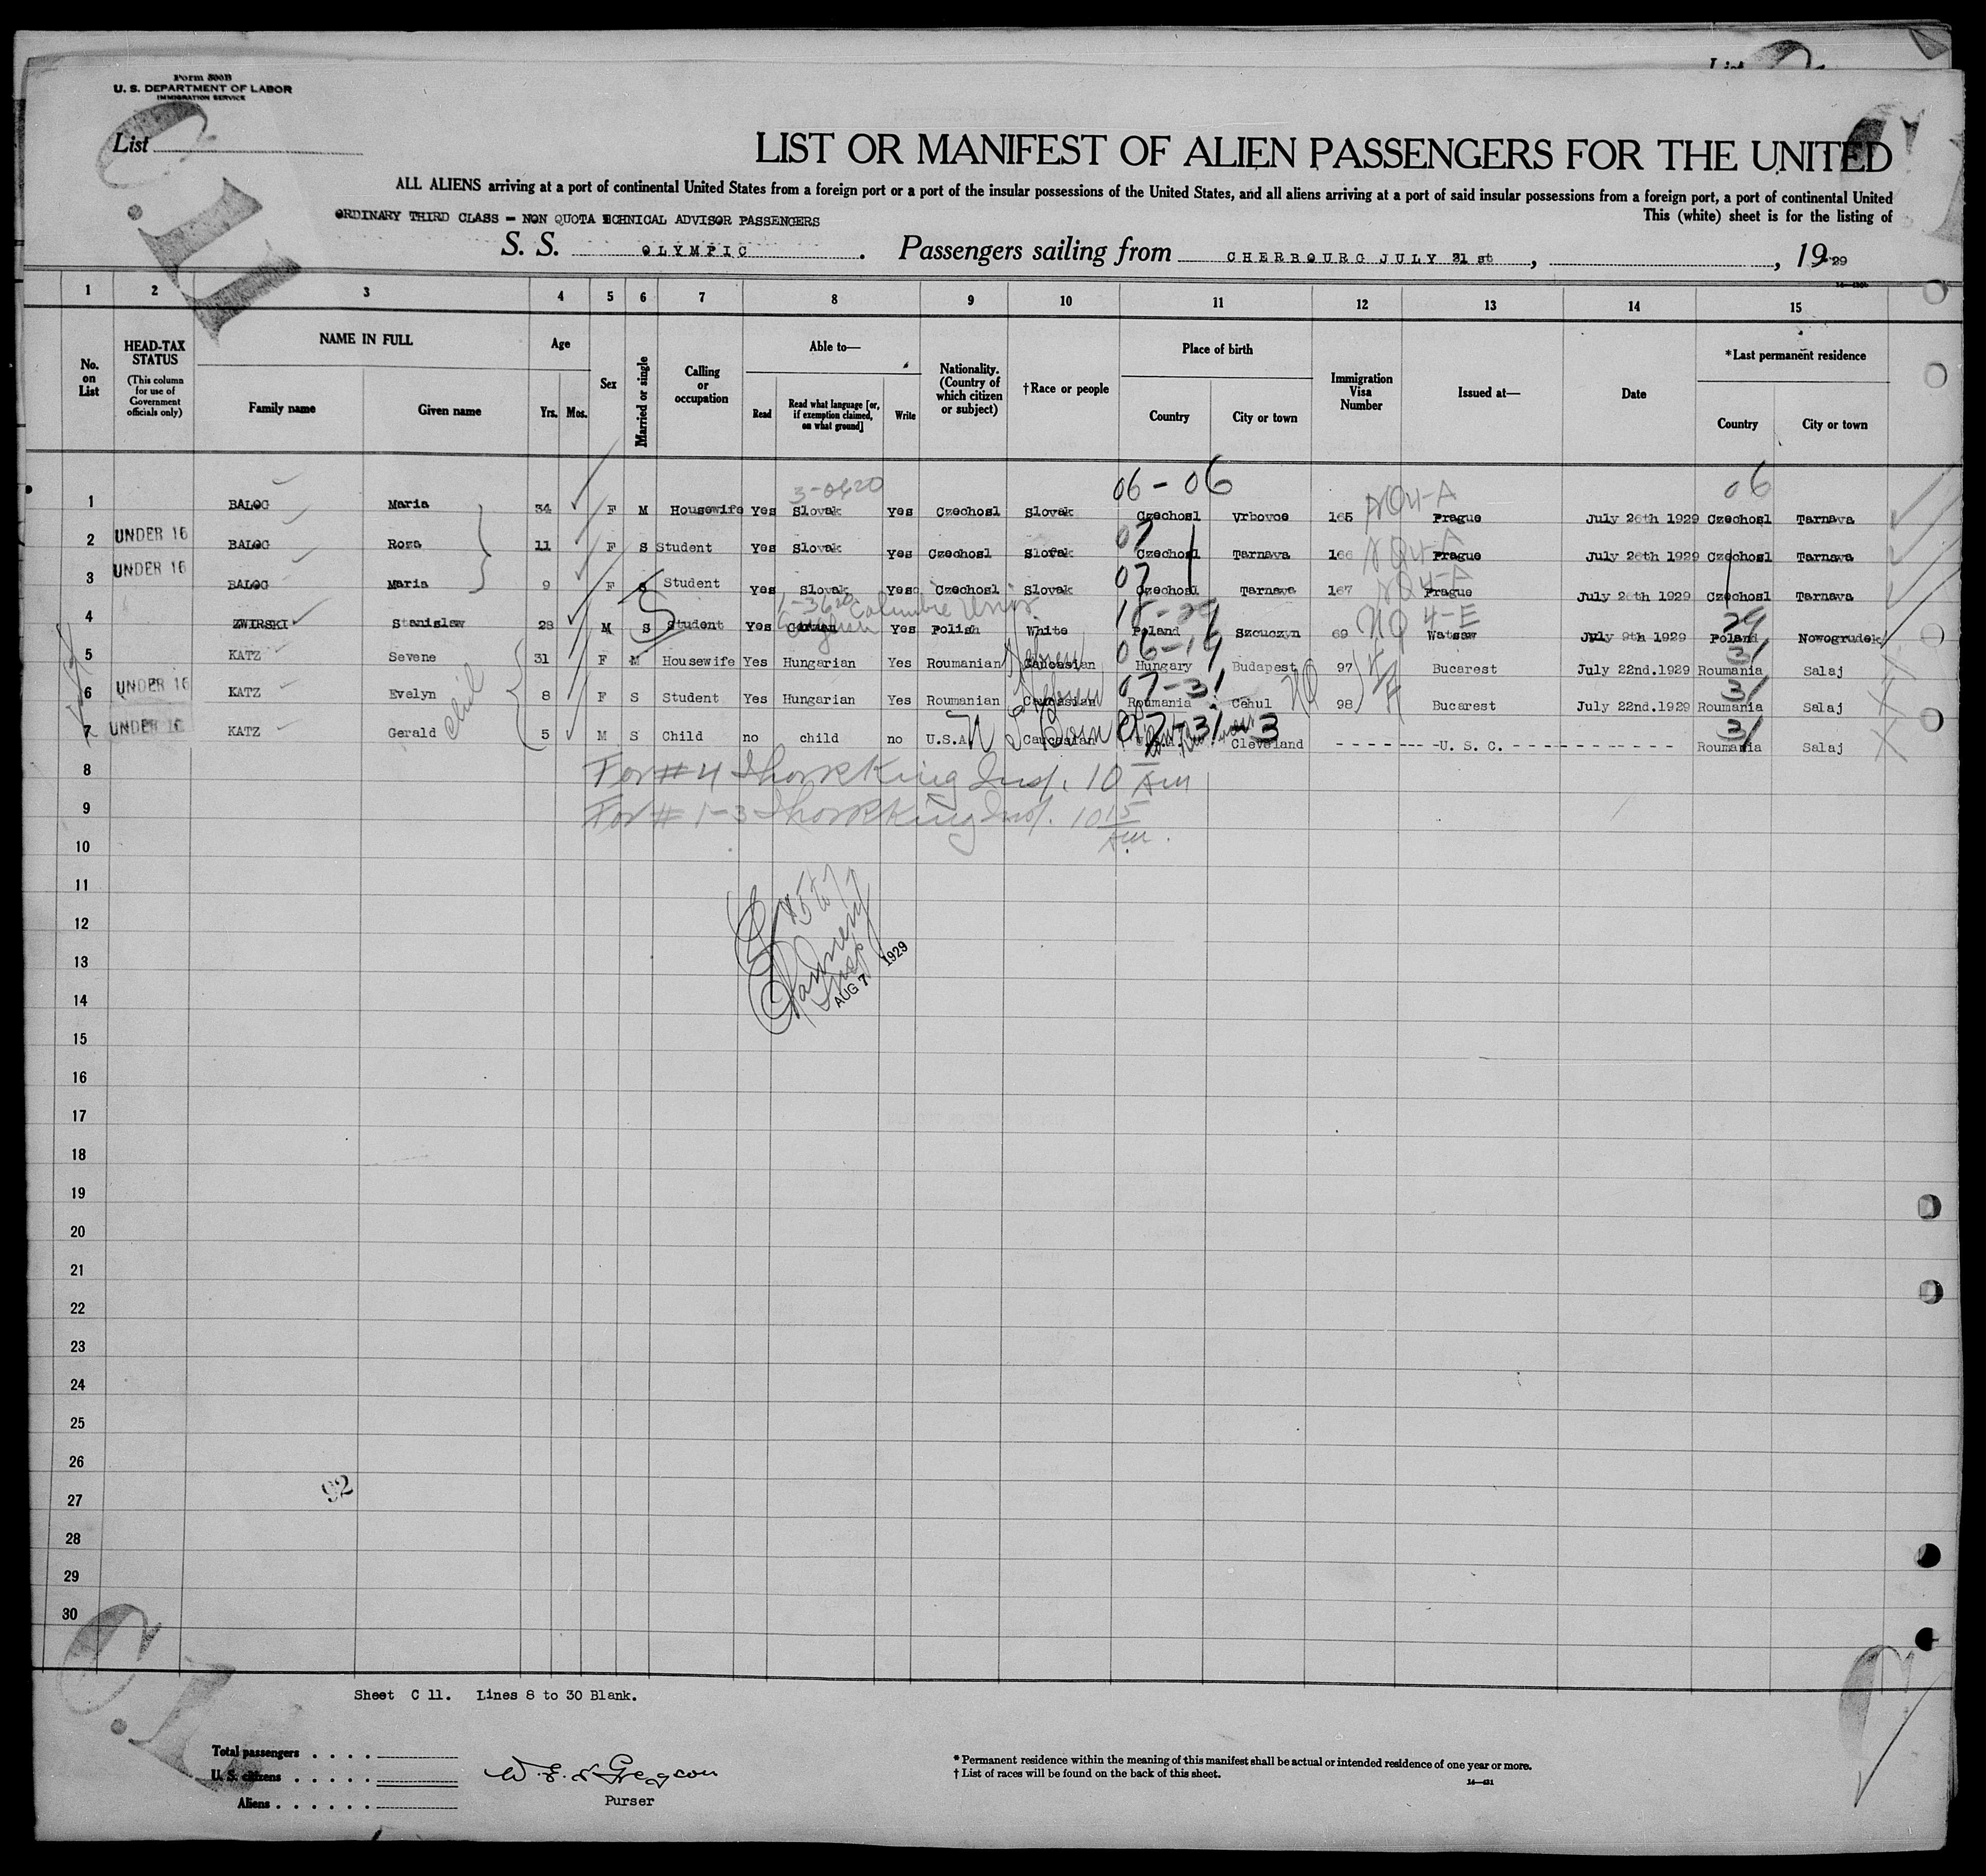 Form 500B
U. S. DEPARTMENT OF LABOR
IMMIGRATION SERVICE
List
LIST OR MANIFEST OF ALIEN PASSENGERS FOR THE UNITED
ALL ALIENS arriving at a port of continental United States from a foreign port or a port of the insular possessions of the United States, and all aliens arriving at a port of said insular possessions from a foreign port, a port of continental United
This (white) sheet is for the listing of
ORDINARY THIRD CLASS - NON QUOTA ECHNICAL ADVISOR PASSENGERS
S. S. OLYMPIC. Passengers sailing from CHERBOURG JULY 31st, , 1929
1 2 3 4 5 6 7 8 9 10 11 12 13 14 15
No. on List
HEAD-TAX STATUS
(This column for use of Government officials only)
NAME IN FULL
Family name Given name
Age
Yrs. Mos.
Sex
Married or single
Calling or occupation
Able to—
Read
Read what language [or, if exemption claimed, on what ground]
Write
Nationality. (Country of which citizen or subject)
†Race or people
Place of birth
Country City or town
Immigration Visa Number
Issued at—
Date
*Last permanent residence
Country City or town
3-0620 06-06 NQ4-A 06
1 BALOG Maria 34 F M Housewife Yes Slovak Yes Czechosl Slovak Czechosl Vrbovce 165 Prague July 26th 1929 Czechosl Tarnava
07 NQ4-A
2 UNDER 16 BALOG Roza 11 F S Student Yes Slovak Yes Czechosl Slovak Czechosl Tarnava 166 Prague July 26th 1929 Czechosl Tarnava
07 NQ4-A
3 UNDER 16 BALOG Maria 9 F S Student Yes Slovak Yes Czechosl Slovak Czechosl Tarnava 167 Prague July 26th 1929 Czechosl Tarnava
Columbia Univ NQ 4-E 29
4 ZWIRSKI Stanislaw 28 M S Student Yes German English Yes Polish White Poland Szcuczyn 69 Watsaw July 9th 1929 Poland Nowogrudek
Hebrew 06-19 31
5 KATZ Severe 31 F M Housewife Yes Hungarian Yes Roumanian Caucasian Hungary Budapest 97 Bucarest July 22nd.1929 Roumania Salaj
Hebrew 07-31 NQ 31
6 UNDER 16 KATZ Evelyn 8 F S Student Yes Hungarian Yes Roumanian Caucasian Roumania Cehul 98 Bucarest July 22nd.1929 Roumania Salaj
31
7 UNDER 16 KATZ Gerald 5 M S Child no child no U.S.A. Caucasian Cleveland - - - - - - - - -U. S. C. - - - - - - - - - - - - Roumania Salaj
8
For #4 10 Am
9
For # 1-3 10 15 Am.
10
11
#5 to 7
12
13
Insp
AUG 7 1929
14
15
16
17
18
19
20
21
22
23
24
25
26
92
27
28
29
30
Sheet C 11. Lines 8 to 30 Blank.
Total passengers . . . .
U. S. citizens . . . . .
Aliens . . . . . .
Purser
* Permanent residence within the meaning of this manifest shall be actual or intended residence of one year or more.
† List of races will be found on the back of this sheet.